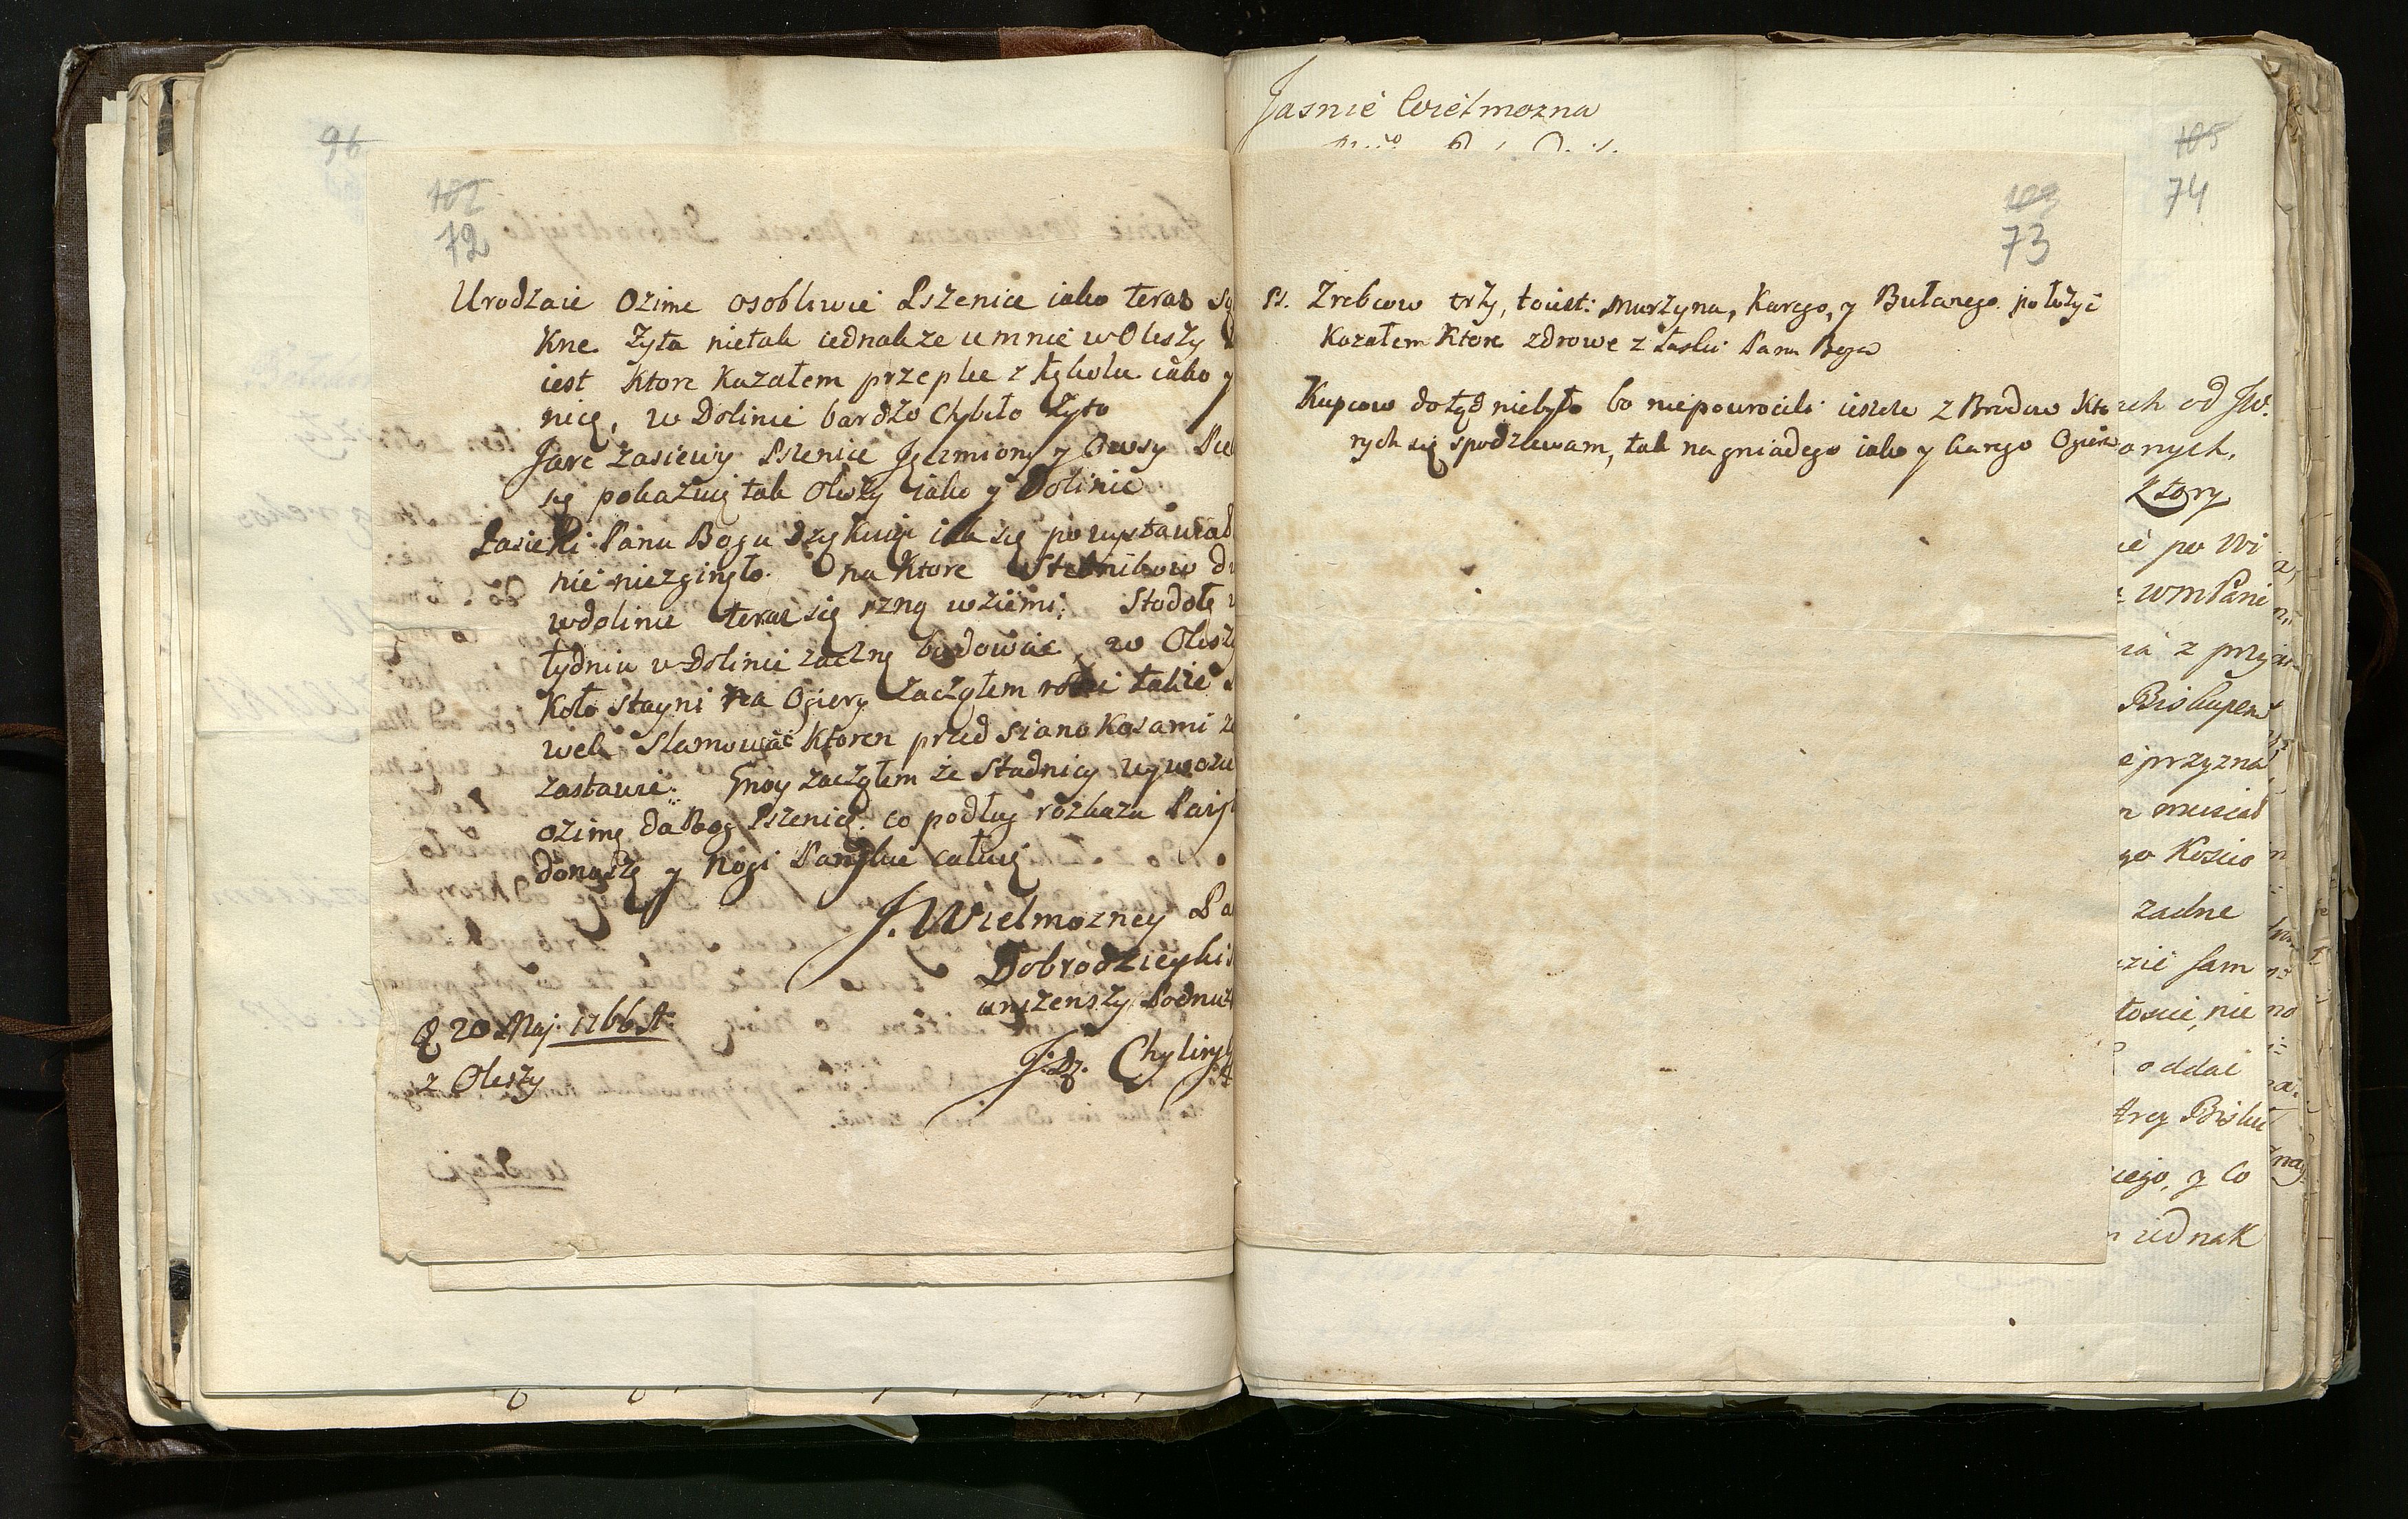 96
102
72
Urodzaie Ozime osobliwie Pszenice iako teraz
kne. Zyta nietak iednakze u mnie w Oleszy
iest Ktore Kazałem przeplec z Kąkolu iako y
nicę, w Dolinie bardzo Chybiło Zyto
Jare zasiewy Pszenice Jęczmiony y Owsy
się pokazuię tak Oleszy iako y Dolinie
Pasieki Panu Bogu dzękuię iak się powystawiał
nie niezginęło. na Ktore Stebnikow
w dolinie teraz się rzną w ziemi; Stodołę
tydniu w Dolinie zacznę budować, w Olesz
Koło stayni na Ogiery zacząłem robić takze
wek Slamować Ktoren przed sianokosami
zastawie. Gnoy zacząłem ze Stadnicy wywozi
ozimę da Bog Pszenicę. co podług rozkazu
donoszę y Nogi Panskie całuię
J. Wielmozney
Dobrodzieyki
unizenszy Podnuz
J: Chylins
D 20 Maj. 1766 A.
z Oleszy
Jasnie Wielmozna
105
74
103
73
Ps. Zrebcow trzy, toiest: Murzyna, Karego, y Bułanego położyć
Kazałem Ktore zdrowe z łaski Pana Boga
Kupcow dotąd niebyło bo niepowrocili ieszcze z Brodow Kto
rych się spodziewam, tak na gniadego iako y karego Ogiera
ch od JW.
anych,
Ktory
ie po Wi
WmPani
ia z przy
Biskupem
e przyzna
n musiał
go Koscio
zadne
zie sam
tosci, nie
oddai
Arcy Bisku
iego, y Co
iednak